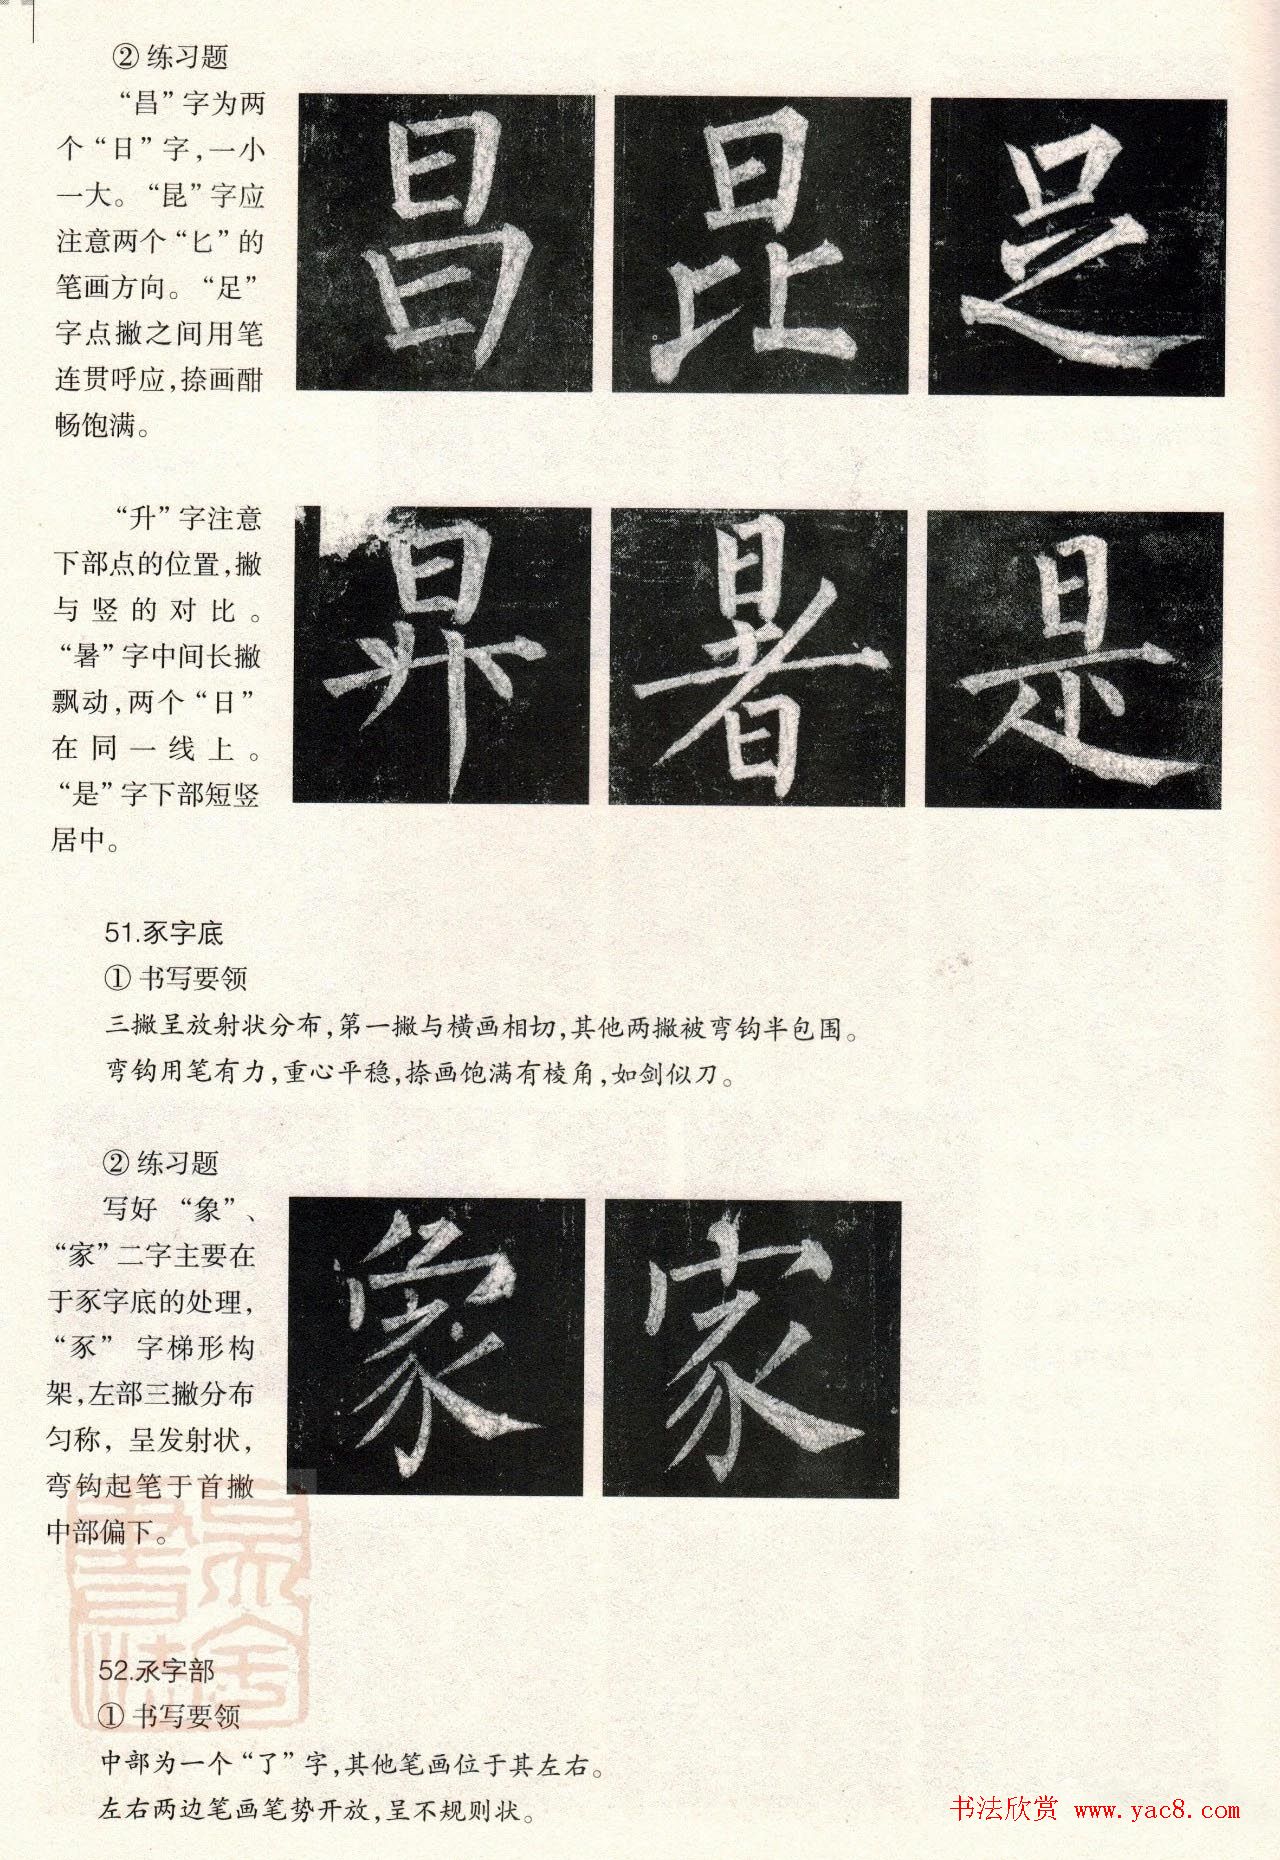 ② 练习题
“昌”字为两
个“日”字,一小
一大。“昆”字应
注意两个“匕”的
笔画方向。“足”
字点撇之间用笔
连贯呼应,捺画酣
畅饱满。
昌 昆 足
“升”字注意
下部点的位置,撇
与竖的对比。
“暑”字中间长撇
飘动,两个“日”
在同一线上。
“是”字下部短竖
居中。
昇 暑 是
51.豕字底
① 书写要领
三撇呈放射状分布,第一撇与横画相切,其他两撇被弯钩半包围。
弯钩用笔有力,重心平稳,捺画饱满有棱角,如剑似刀。
② 练习题
写好“象”、
“家”二字主要在
于豕字底的处理,
“豕”字梯形构
架,左部三撇分布
匀称,呈发射状,
弯钩起笔于首撇
中部偏下。
象 家
52.氶字部
① 书写要领
中部为一个“了”字,其他笔画位于其左右。
左右两边笔画笔势开放,呈不规则状。
书法欣赏 www.yac8.com